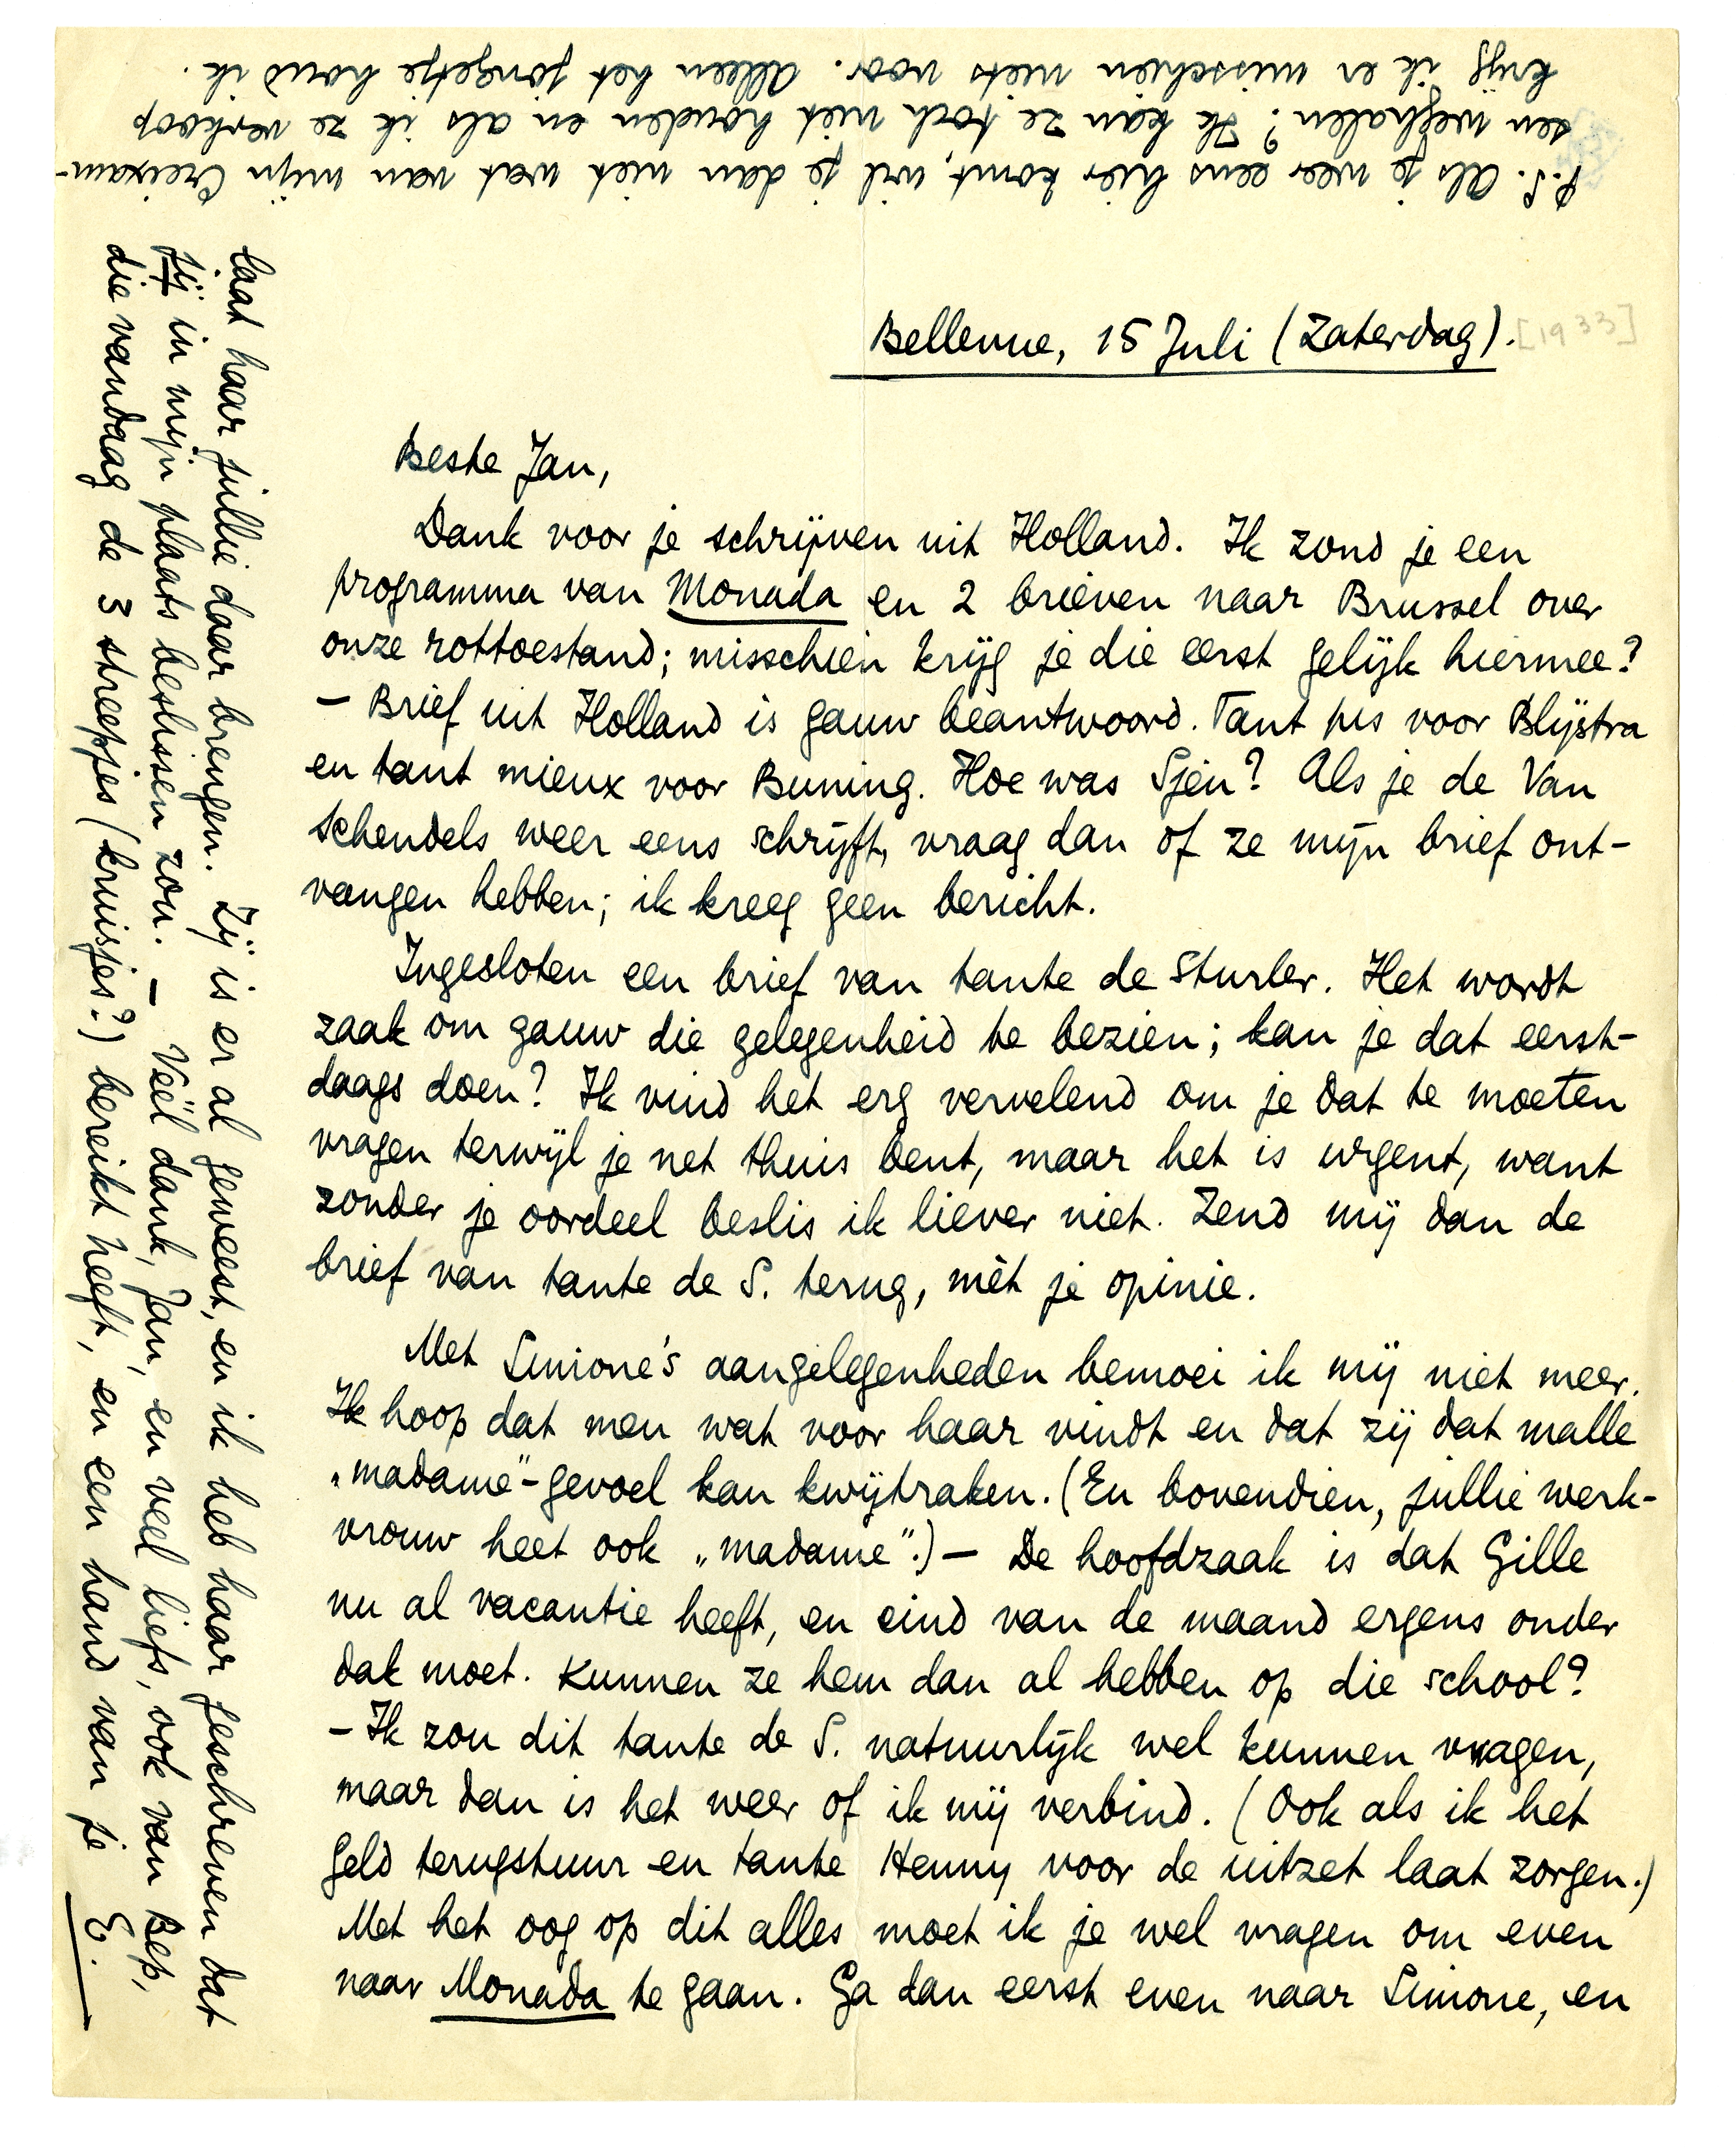 Bellevue, 15 Juli (Zaterdag). [1933]
Beste Jan,
Dank voor je schrijven uit Holland. Ik zond je een
programma van Monada en 2 brieven naar Brussel over
onze rottoestand; misschien krijg je die eerst gelijk hiermee?
– Brief uit Holland is gauw beantwoord. Tant pis voor Blijstra
en tant mieux voor Buning. Hoe was Sjen? Als je de Van
Schendels weer eens schrijft, vraag dan of ze mijn brief ont-
vangen hebben; ik kreeg geen bericht.
Ingesloten een brief van tante de Sturler. Het wordt
zaak om gauw die gelegenheid te bezien; kan je dat eerst-
daags doen? Ik vind het erg vervelend om je dat te moeten
vragen terwijl je net thuis bent, maar het is urgent, want
zonder je oordeel beslis ik liever niet. Zend mij dan de
brief van tante de S. terug, mèt je opinie.
Met Simone's aangelegenheden bemoei ik mij niet meer.
Ik hoop dat men wat voor haar vindt en dat zij dat malle
„madame”-gevoel kan kwijtraken. (En bovendien, jullie werk-
vrouw heet ook „madame”.) – De hoofdzaak is dat Gille
nu al vacantie heeft, en eind van de maand ergens onder
dak moet. Kunnen ze hem dan al hebben op die school?
– Ik zou dit tante de S. natuurlijk wel kunnen vragen,
maar dan is het weer of ik mij verbind. (Ook als ik het
geld terugstuur en tante Henny voor de uitzet laat zorgen.)
Met het oog op dit alles moet ik je wel vragen om even
naar Monada te gaan. Ga dan eerst even naar Simone, en
laat haar jullie daar brengen. Zij is er al geweest, en ik heb haar geschreven dat
jij in mijn plaats beslissen zou. – Veel dank, Jan, en veel liefs, ook van Bep,
die vandaag de 3 streepjes (kruisjes?) bereikt heeft, en een hand van je E.
P.S. Als je weer eens hier komt, wil je dan niet wat van mijn Creixam-
sen weghalen? Ik kan ze toch niet houden en als ik ze verkoop
krijg ik er misschien niets voor. Alleen het jongetje houd ik.